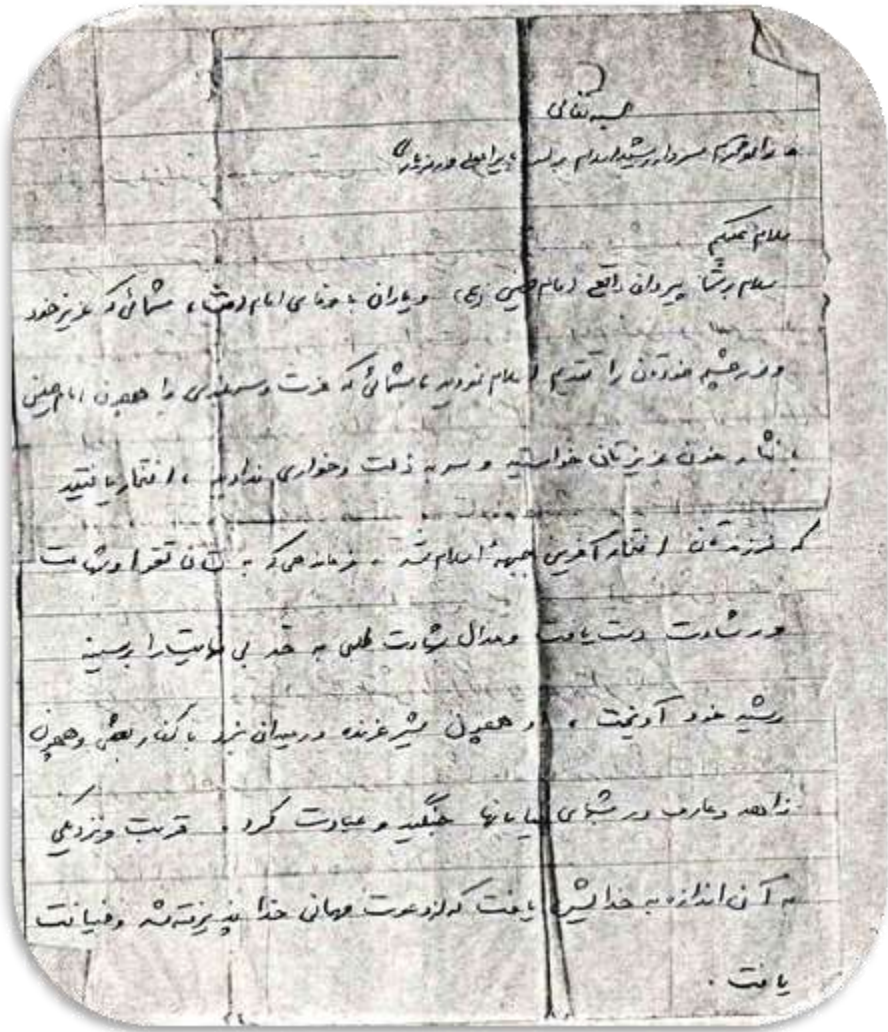 بسمه تعالی
خانواده محترم سردار رشید اسلام برادر
سلام علیکم
سلام بر شما پیروان واقعی امام خمینی (ره) و یاران با وفای امام امت، شمائی که عزیز خود
و نور چشم خودتان را تقدیم اسلام نمودید، شمائی که عزت و سربلندی را همچون امام حسین
با نثار خون عزیزتان خواستید و سر به ذلت و خواری ندادید، افتخار یافتید
که فرزندتان افتخار آفرین جبهه اسلام شد. فرمانده‌ی که به تقوا و شهامت
و رشادت دست یافت و مدال شهادت طلبی به حد بی نهایت را بر سینه
رشید خود آویخت، او همچون شیر غرنده در میدان نبرد با کفار بعثی و همچون
زاهد و عارف در شبهای بیابانها جنگید و عبادت کرد. قربت و نزدیکی
به آن اندازه به خدایش یافت که از او دعوت مهمانی خدا پذیرفته شد و ضیافت
یافت.